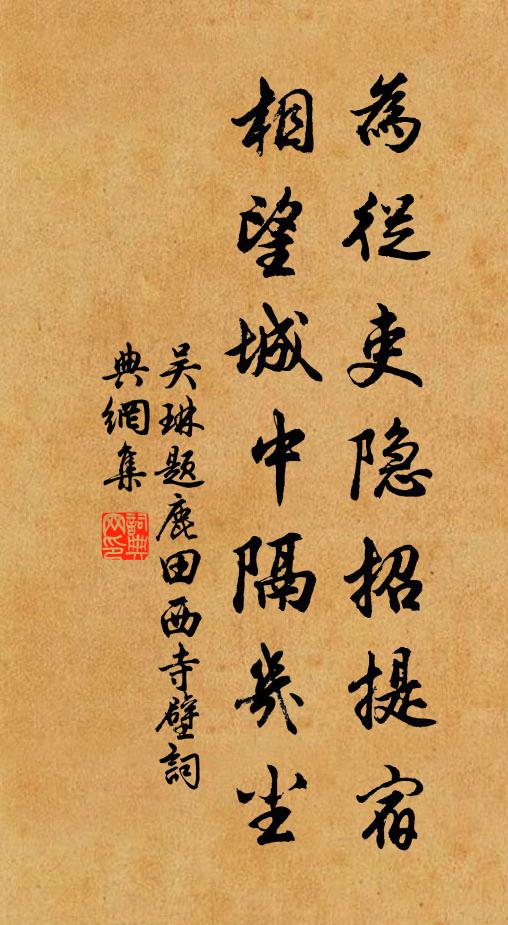 為從吏隐招提宿
相望城中隔幾尘
吴琳题鹿田西寺壁詞
典網集
詞典網印